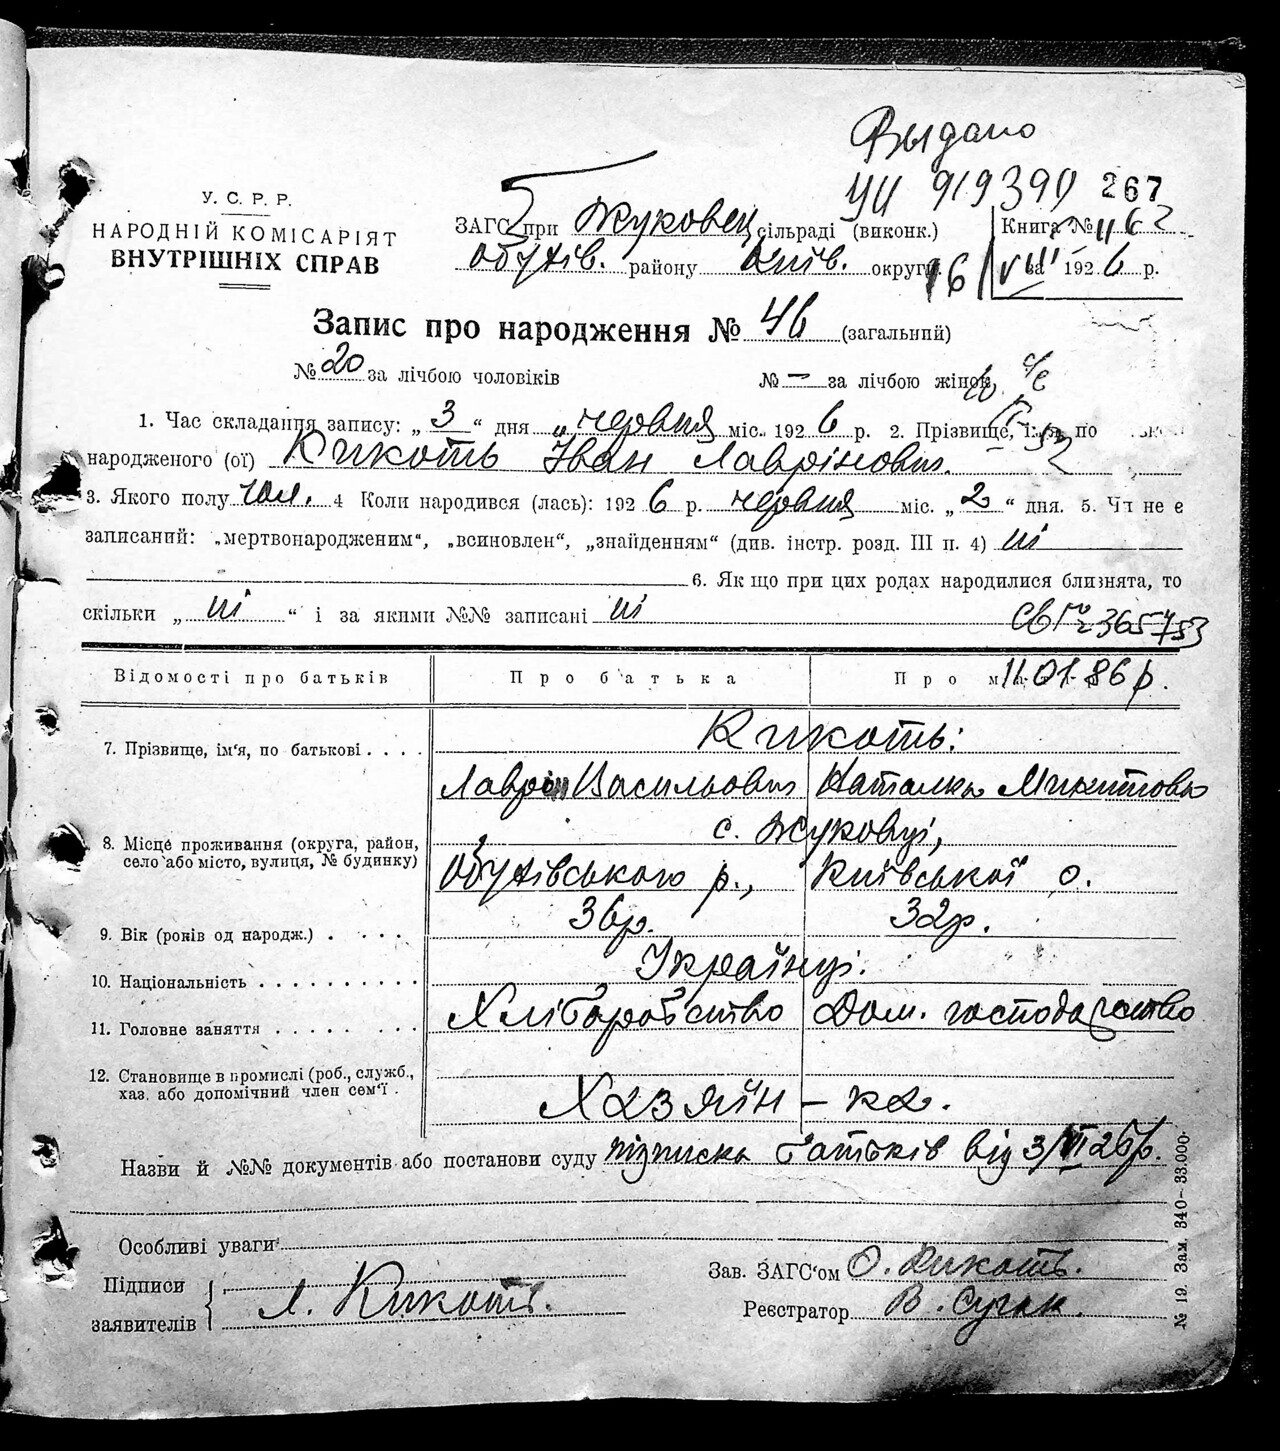 Выдано
УЦ 919390 267
У. С. Р. Р.
НАРОДНІЙ КОМІСАРІЯТ
ВНУТРІШНІХ СПРАВ
ЗАГС при Жуковец. сільраді (виконк.)
Обухів. району Київ. округи.
Книга №
за 1926 р.
Запис про народження № 46 (загальний)
№ 20 за лічбою чоловіків № — за лічбою жінок
1. Час складання запису: „ 3 “ дня „ червня міс. 1926 р. 2. Прізвище, ім'я, по
народженого (ої) Кикоть Іван Лаврінович.
3. Якого полу чол. 4 Коли народився (лась): 1926 р. червня міс. „ 2 “ дня. 5. Чи не є
записаний: „мертвонародженим“, „всиновлен“, „знайденням“ (див. інстр. розд. III п. 4) ні
6. Як що при цих родах народилися близнята, то
скільки „ ні “ і за якими №№ записані ні
365753
11.01.86 р.
Відомості про батьків Про батька Про матір
7. Прізвище, ім'я, по батькові . . . . Кикоть:
Лаврін Васильович Наталка Микитовна
8. Місце проживання (округа, район, село або місто, вулиця, № будинку) с. Жуковці,
Обухівського р., Київської о.
9. Вік (років од народж.) . . . . 36 р. 32 р.
10. Національність . . . . . . . . . . Українці.
11. Головне заняття . . . . . . . . . Хліборобство Дом. господарство
12. Становище в промислі (роб., служб.,
хаз. або допомічний член сем'ї . Хазяїн – ка.
Назви й №№ документів або постанови суду підписка батьків від 3/VI 26 р.
Особливі уваги
Підписи
заявителів Л. Кикоть.
Зав. ЗАГС'ом О. Кикоть.
Реєстратор В. Сучак.
№ 19. Зам. 340–33.000.